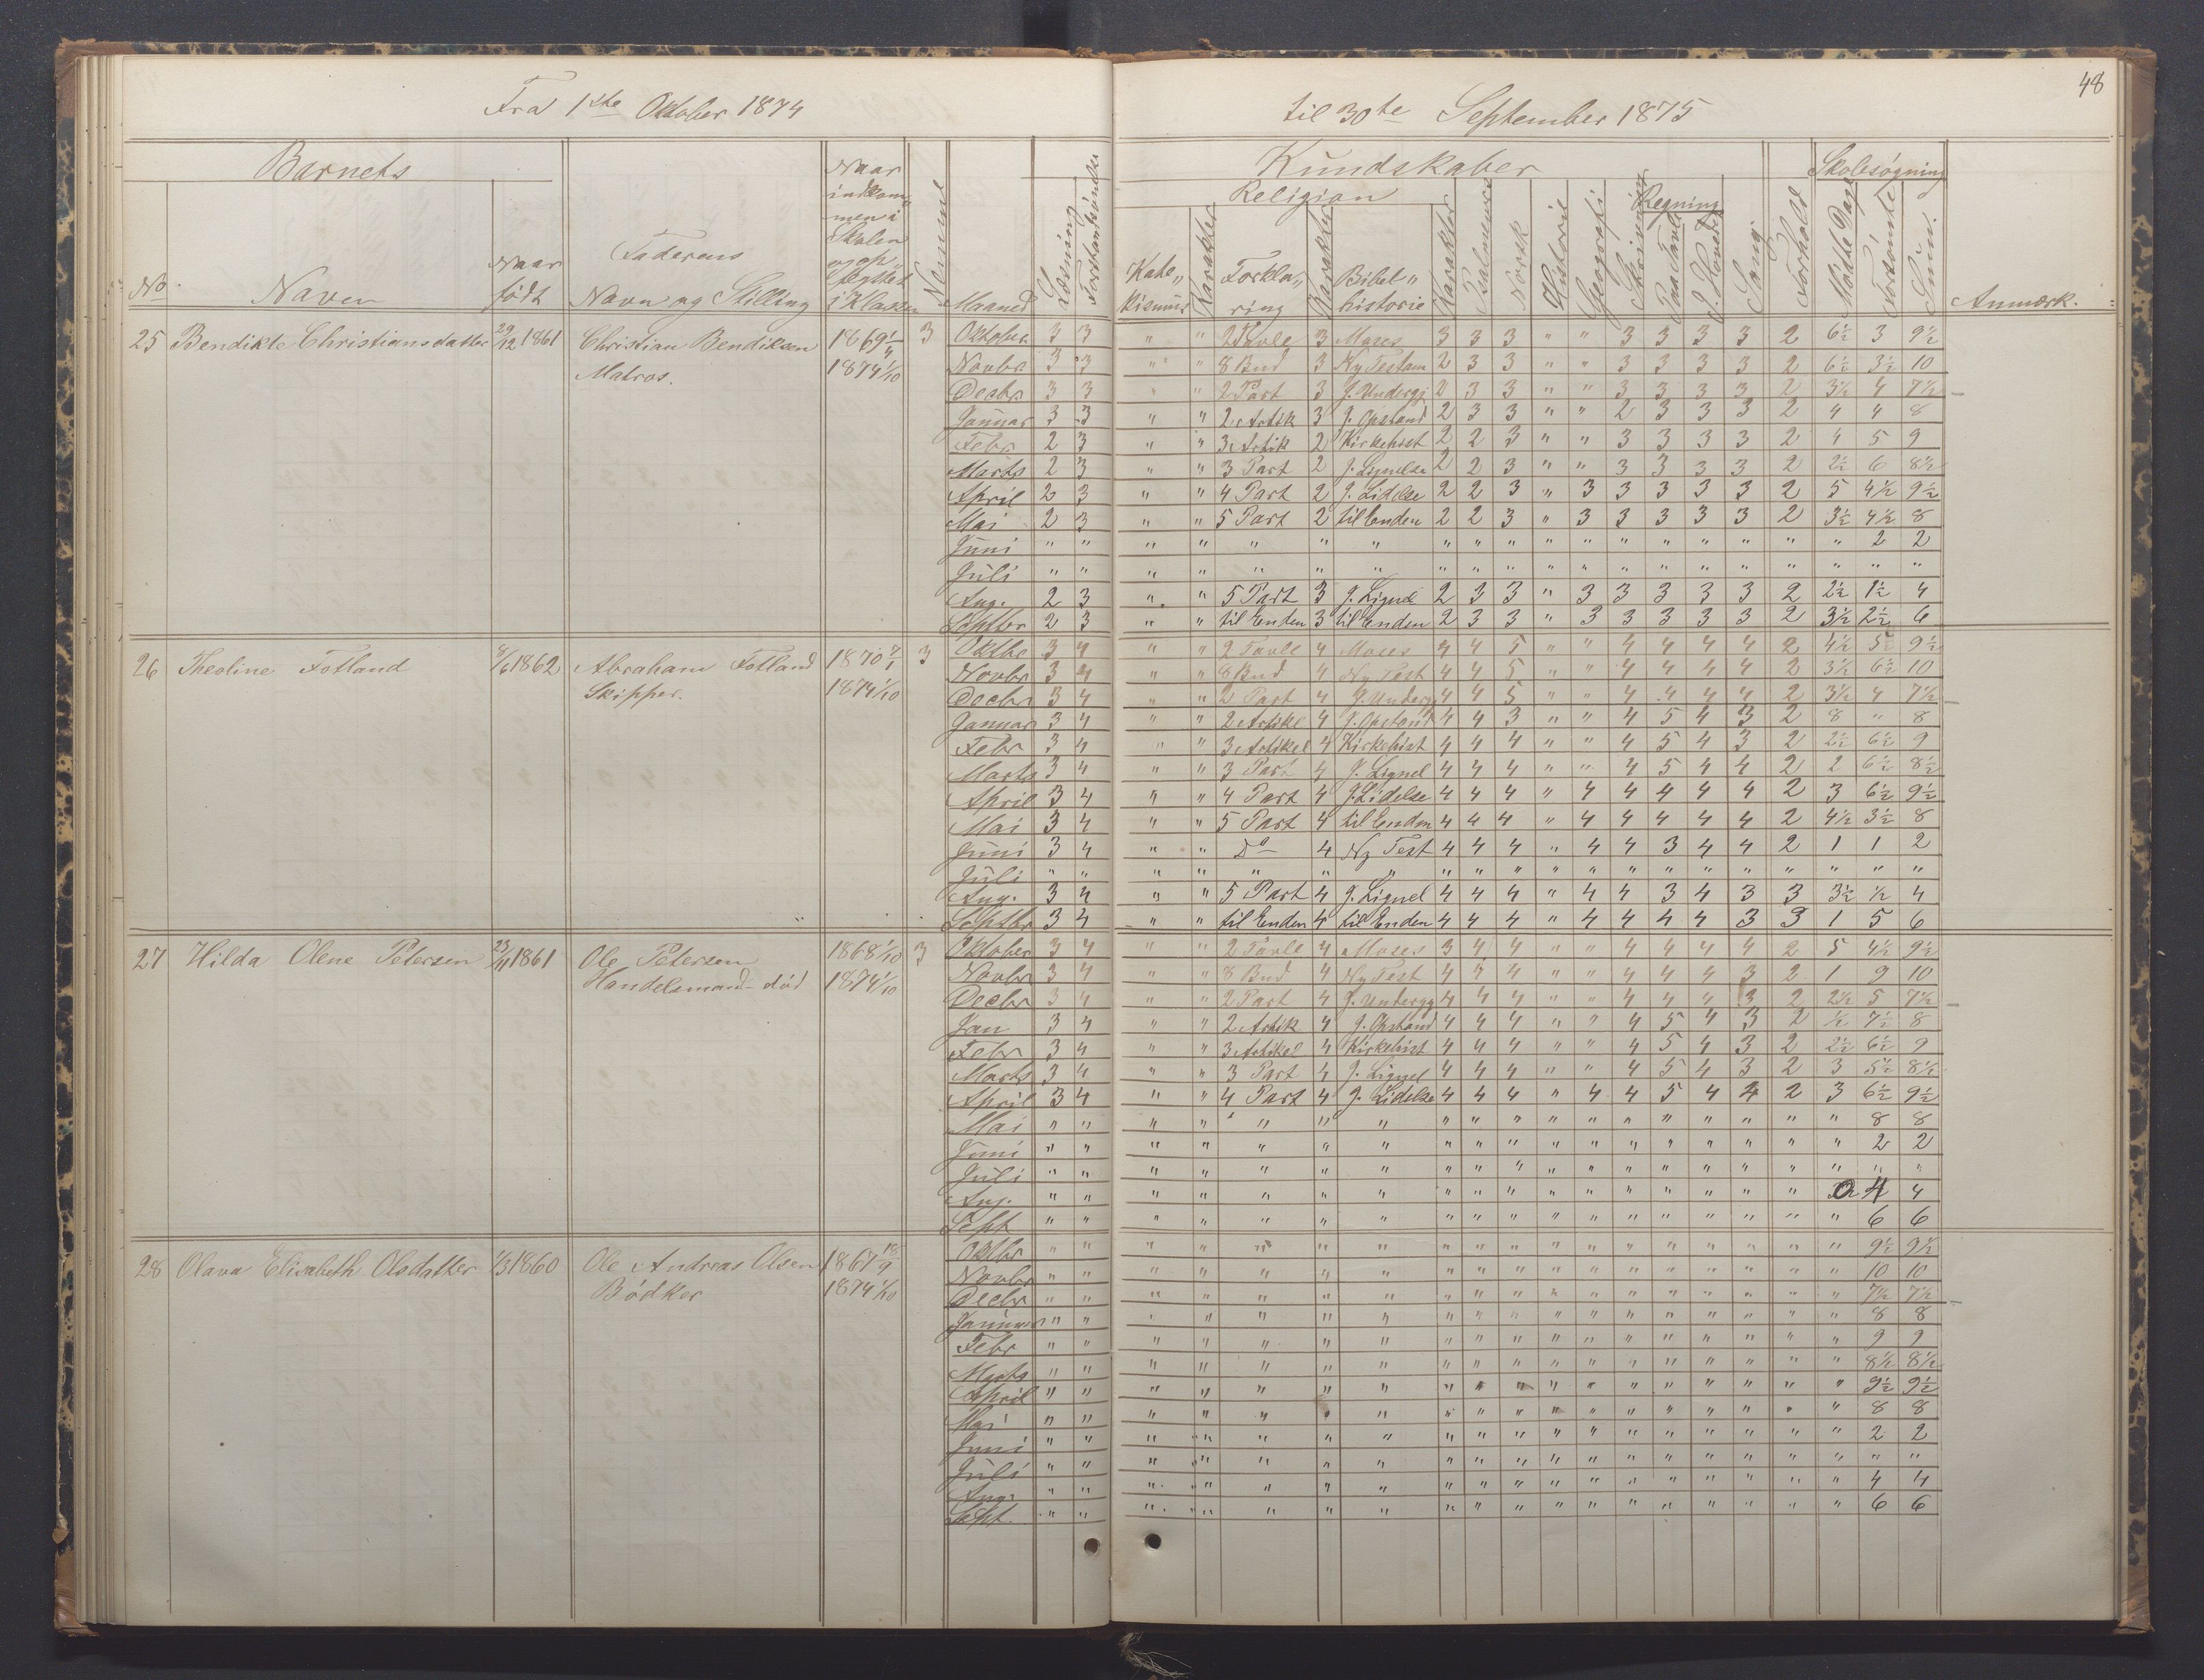 48
Fra 1ste Oktober 1874 til 30te September 1875
Barnets
No
Naven
Naar født
Faderens Navn og Stilling
Naar indkommen i Skolen og opflyttet i Klassen
Maaned
Læsning
Kundskaber
Religion
Katekismus
Karakter
Forklaring
Karakter
Bibelhistorie
Karakter
Psalmevers
Norsk
Historie
Geografi
Skrivning
Regning
Paa Tavle
I Hovedet
Sang
Forhold
Skolesøgning
Mødte Dage
Forsømte
Sum.
Anmærk.
25 Bendikte Christiansdatter 29/12 1861 Christian Bendiksen Matros. 1869 1/4 1874 1/10 3
Oktober 3 3 " " 2 Tavle 3 Moses 3 3 3 " " 3 3 3 3 2 6½ 3 9½
Novbr 3 3 " " 8 Bud 3 Ny Testam 2 3 3 " " 3 3 3 3 2 6½ 3½ 10
Decbr 3 3 " " 2 Part 3 J. Undergj 2 3 3 " " 3 3 3 3 2 3½ 4 7½
Januar 3 3 " " 2 Artik 3 J. Opstand 2 3 3 " " 2 3 3 3 2 4 4 8
Febr. 2 3 " " 3 Artik 2 Kirkehist 2 2 3 " " 3 3 3 3 2 4 5 9
Marts 2 3 " " 3 Part 2 J. Lignelse 2 2 3 " " 3 3 3 3 2 2½ 6 8½
April 2 3 " " 4 Part 2 J. Lidelse 2 2 3 " 3 3 3 3 3 2 5 4½ 9½
Mai 2 3 " " 5 Part 2 til Enden 2 2 3 " 3 3 3 3 3 2 3½ 4½ 8
Juni " " " " " " " " " " " " " " " " " " 2 2
Juli " " " " " " " " " " " " " " " " " " " "
Aug. 2 3 " " 5 Part 3 J. Lignel 2 3 3 " 3 3 3 3 3 2 2½ 1½ 4
Septbr 2 3 " " til Enden 3 til Enden 2 3 3 " 3 3 3 3 3 2 3½ 2½ 6
26 Theoline Fotland 8/6 1862 Abraham Fotland Skipper. 1870 7/1 1874 1/10 3
Oktbr 3 4 " " 2 Tavle 4 Moses 4 4 5 " " 4 4 4 4 2 4½ 5 9½
Novbr 3 4 " " 8 Bud 4 Ny Test 4 4 5 " " 4 4 4 4 2 3½ 6½ 10
Decbr 3 4 " " 2 Part 4 J. Undergj 4 4 5 " " 4 4 4 4 2 3½ 4 7½
Januar 3 4 " " 2 Artikl 4 J. Opstand 4 4 3 " " 4 5 4 3 2 8 " 8
Febr 3 4 " " 3 Artikel 4 Kirkehist 4 4 4 " " 4 5 4 3 2 2½ 6½ 9
Marts 3 4 " " 3 Part 4 J. Lignel 4 4 4 " " 4 5 4 4 2 2 6½ 8½
April 3 4 " " 4 Part 4 J. Lidelse 4 4 4 " 4 4 4 4 4 2 3 6½ 9½
Mai 3 4 " " 5 Part 4 til Enden 4 4 4 " 4 4 4 4 4 2 4½ 3½ 8
Juni 3 4 " " Do 4 Ny Test 4 4 4 " 4 4 3 4 4 2 1 1 2
Juli " " " " " " " " " " " " " " " " " " " "
Aug. 3 4 " " 5 Part 4 J. Lignel 4 4 4 " 4 4 3 4 3 3 3½ ½ 4
Septbr 3 4 " " til Enden 4 til Enden 4 4 4 " 4 4 4 4 3 3 1 5 6
27 Hilda Olene Petersen 23/11 1861 Ole Petersen Handelsmand død 1868 1/10 1874 1/10 3
Oktober 3 4 " " 2 Tavle 4 Moses 3 4 4 " " 4 4 4 4 2 5 4½ 9½
Novbr 3 4 " " 8 Bud 4 Ny Test 4 4 4 " " 4 4 4 3 2 1 9 10
Decbr 3 4 " " 2 Part 4 J. Undergg 4 4 4 " " 4 4 4 3 2 2½ 5 7½
Jan 3 4 " " 2 Artik 4 J. Opstand 4 4 4 " " 4 5 4 3 2 ½ 7½ 8
Febr 3 4 " " 3 Artikel 4 Kirkehist 4 4 4 " " 4 5 4 3 2 2½ 6½ 9
Marts 3 4 " " 3 Part 4 J. Lignel 4 4 4 " " 4 5 4 3 2 3 5½ 8½
April 3 4 " " 4 Part 4 J. Lidelse 4 4 4 " 4 4 5 4 4 2 3 6½ 9½
Mai " " " " " " " " " " " " " " " " " " 8 8
Juni " " " " " " " " " " " " " " " " " " 2 2
Juli " " " " " " " " " " " " " " " " " " " "
Aug. " " " " " " " " " " " " " " " " " 4 4
Sept " " " " " " " " " " " " " " " " " " 6 6
28 Olava Elisabeth Olsdatter 1/3 1860 Ole Andreas Olsen Bødker 1867 18/9 1874 1/10
Oktbr " " " " " " " " " " " " " " " " " " 9½ 9½
Novbr " " " " " " " " " " " " " " " " " " 10 10
Decbr " " " " " " " " " " " " " " " " " " 7½ 7½
Januar " " " " " " " " " " " " " " " " " " 8 8
Febr " " " " " " " " " " " " " " " " " " 9 9
Marts " " " " " " " " " " " " " " " " " " 8½ 8½
April " " " " " " " " " " " " " " " " " " 9½ 9½
Mai " " " " " " " " " " " " " " " " " " 8 8
Juni " " " " " " " " " " " " " " " " " " 2 2
Juli " " " " " " " " " " " " " " " " " " " "
Aug. " " " " " " " " " " " " " " " " " " 4 4
Sept. " " " " " " " " " " " " " " " " " " 6 6